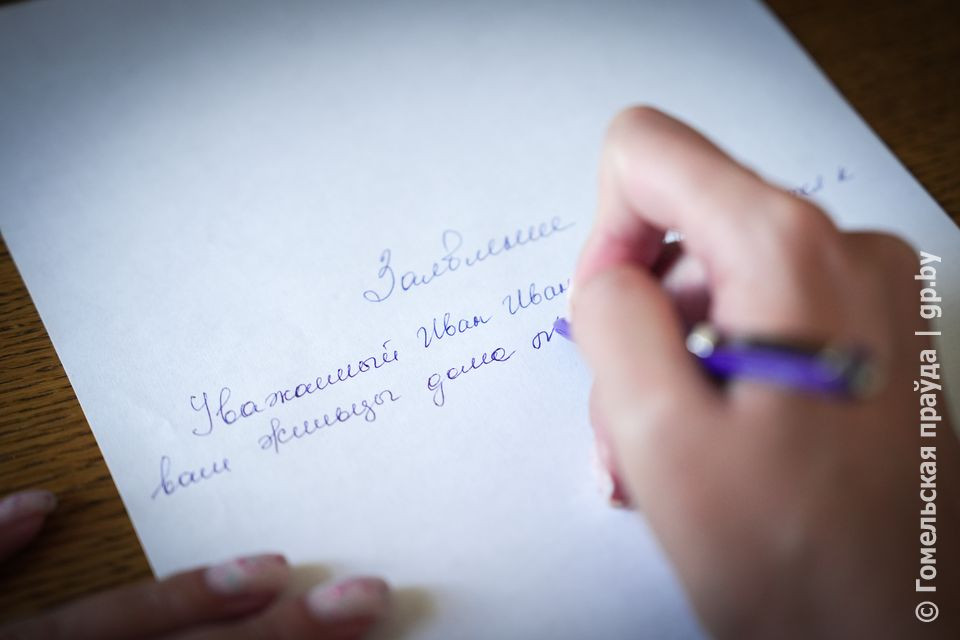 Заявление
Уважаемый Иван Иван к
вам жильцы дома
© Гомельская праўда | gp.by